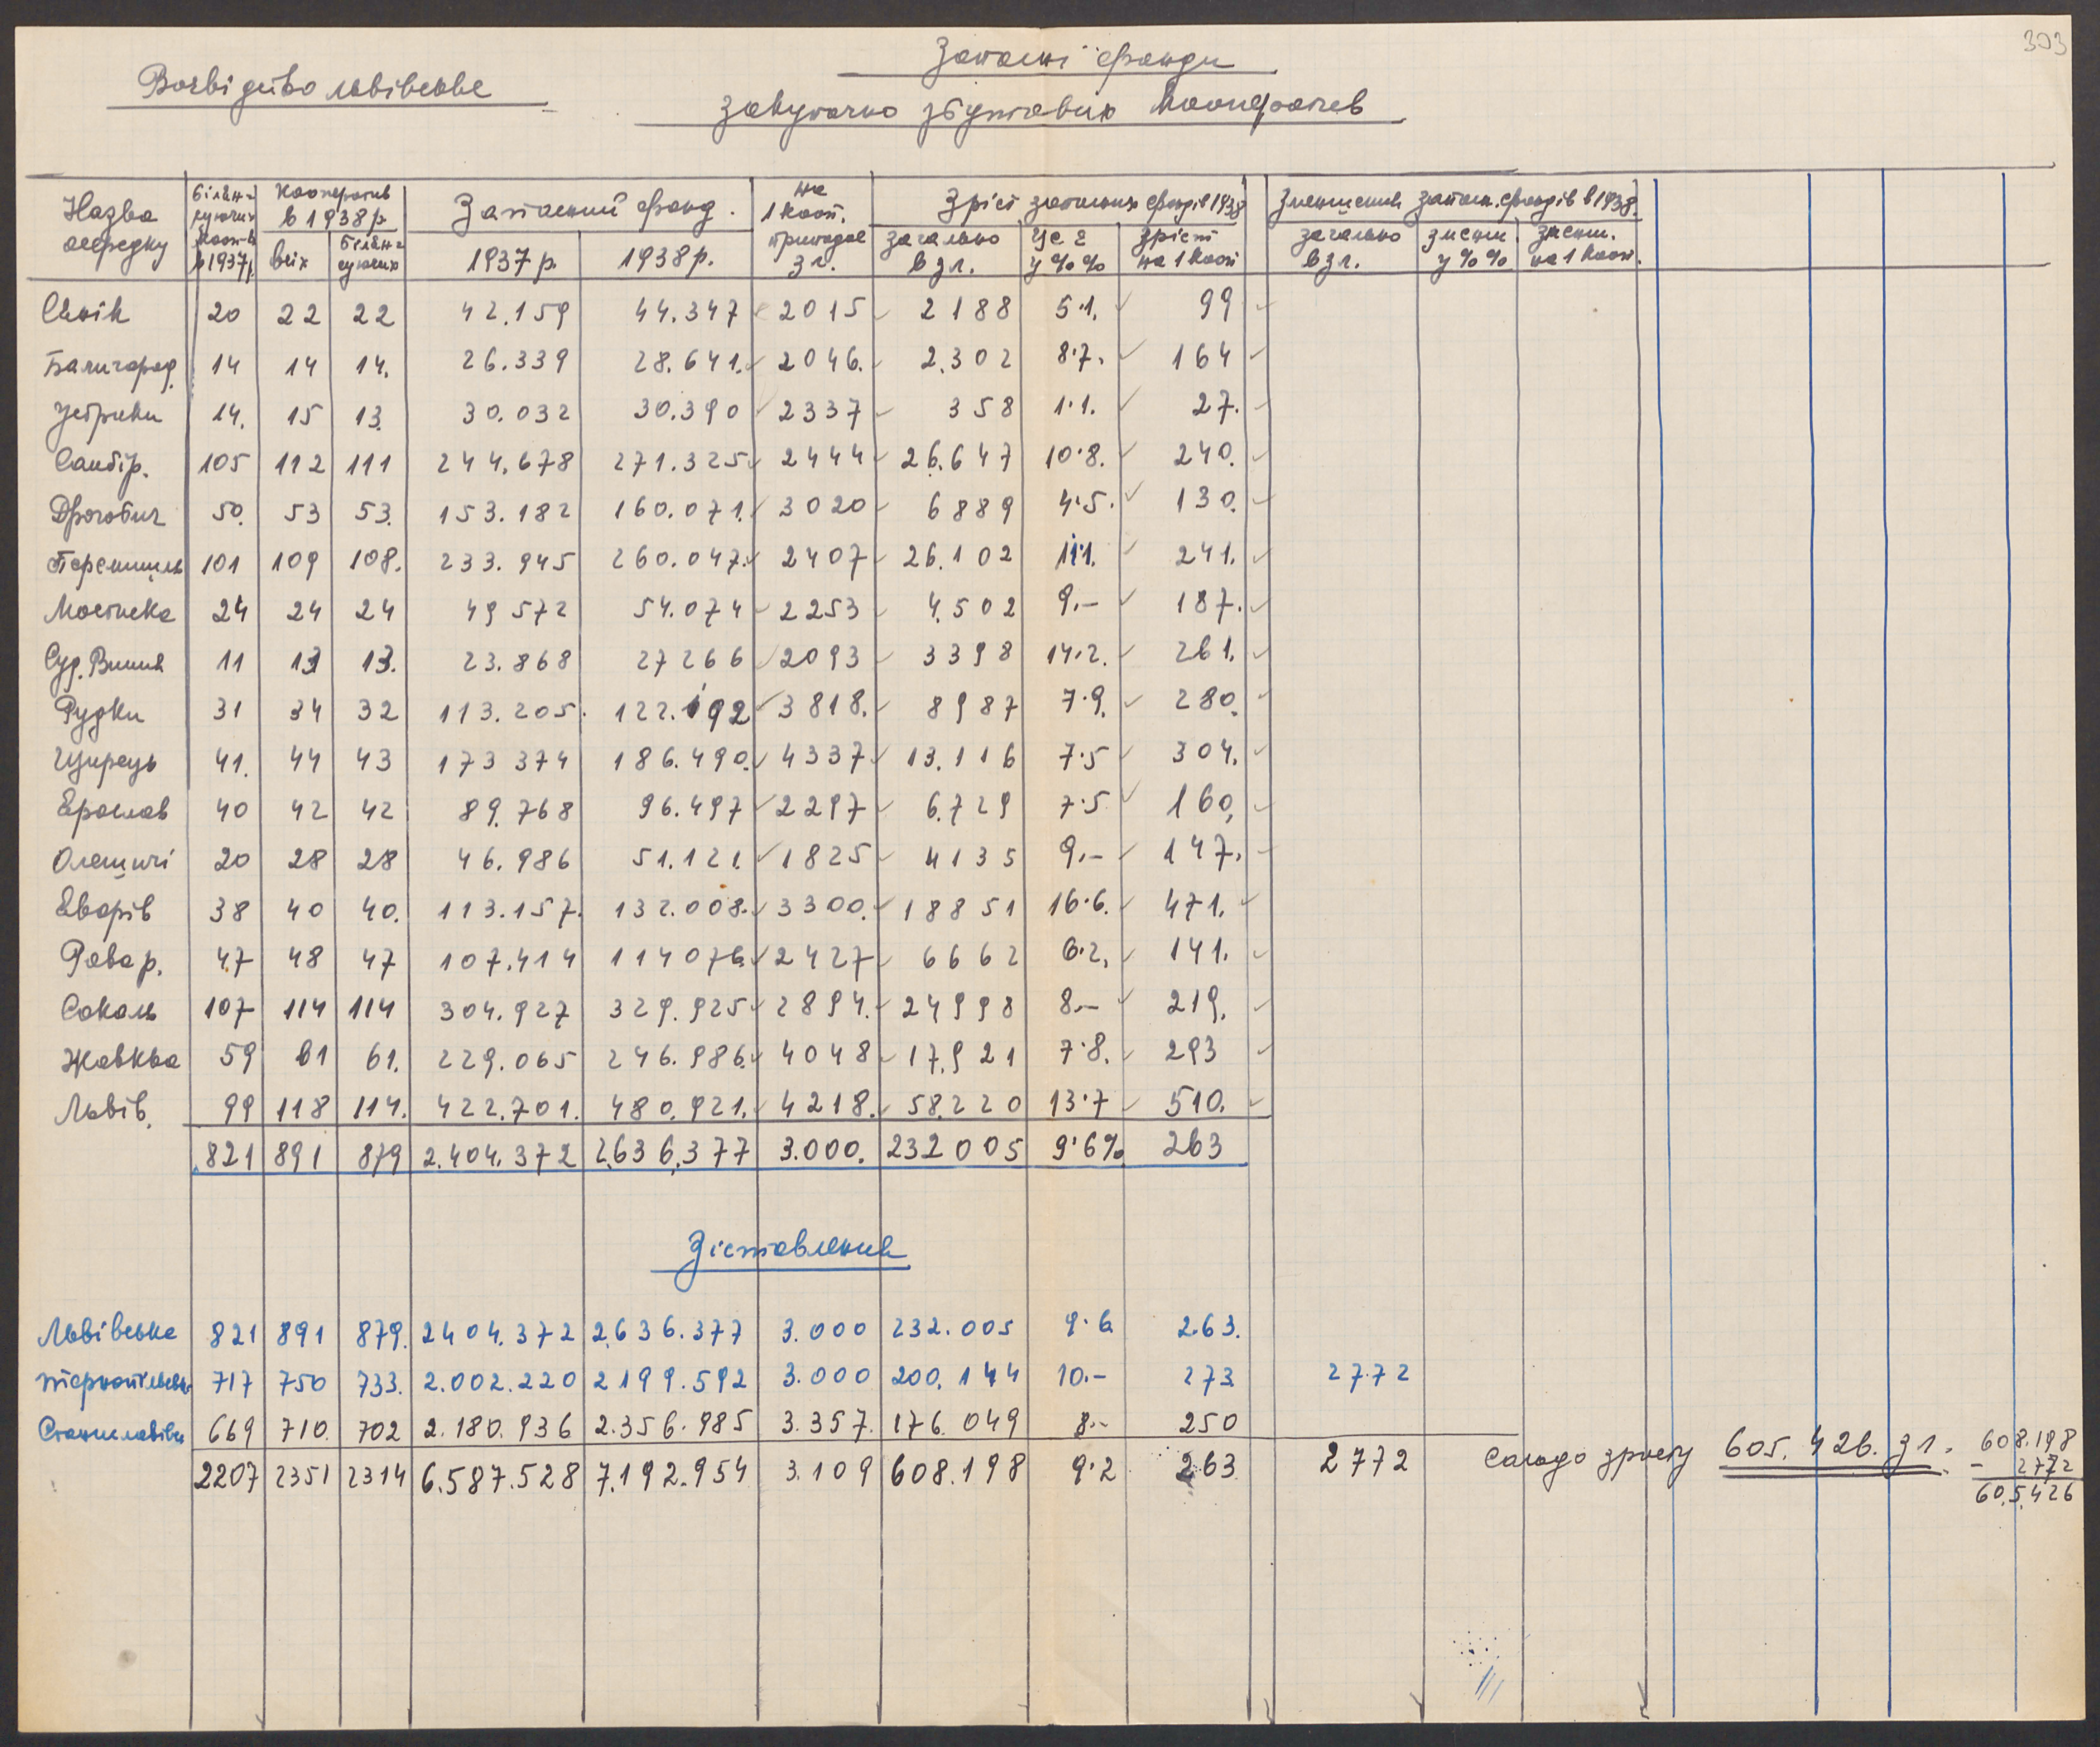 303
Запасні фонди
Воєвідство львівське
закупочно збутових кооператив
Назва осередку | білян-суючих кооп-в в 1937 р. | Кооператив в 1938 р. | Запасний фонд. | на 1 кооп. припадає зл. | Зріст запасних фондів 1938 | Зменшення запасн. фондів в 1938.
всіх | білян-суючих | 1937 р. | 1938 р. | загально в зл. | це є у %% | зріст на 1 кооп | загально в зл. | зменш. у %% | зменш. на 1 кооп.
Сянік 20 22 22 42.159 44.347 2015 2188 5·1. 99
Балигород. 14 14 14. 26.339 28.641. 2046. 2.302 8·7. 164
Устрики 14. 15 13. 30.032 30.390 2337 358 1·1. 27.
Самбір. 105 112 111 244.678 271.325 2444 26.647 10·8. 240.
Дрогобич 50. 53 53. 153.182 160.071. 3020 6889 4·5. 130.
Перемишль 101 109 108. 233.945 260.047. 2407 26.102 11·1. 241.
Мостиска 24 24 24 49 572 54.074 2253 4.502 9.- 187.
Суд. Вишня 11 13 13. 23.868 27266 2093 3398 14·2. 261.
Рудки 31 34 32 113.205. 122.192 3818. 8987 7·9. 280.
Щирець 41. 44 43 173 374 186.490. 4337 13.116 7·5 304.
Ярослав 40 42 42 89.768 96.497 2297 6.729 7·5 160,
Олешичі 20 28 28 46.986 51.121. 1825 4135 9.- 147.
Яворів 38 40 40. 113.157. 132.008. 3300. 18851 16·6. 471.
Рава р. 47 48 47 107.414 114076. 2427 6662 6·2. 141.
Сокаль 107 114 114 304.927 329.925 2894. 24998 8.- 219.
Жовква 59 61 61. 229.065 246.986. 4048 17.921 7·8. 293
Львів. 99 118 114. 422.701. 480.921. 4218. 58.220 13·7 510.
821 891 879 2.404.372 2.636.377 3.000. 232005 9·6% 263
Зіставлення
Львівське 821 891 879. 2404.372 2.636.377 3.000 232.005 9·6 263.
Тернопільськ. 717 750 733. 2.002.220 2199.592 3.000 200.144 10.- 273. 2772
Станиславівськ 669 710. 702 2.180.936 2.356.985 3.357. 176.049 8.- 250
2207 2351 2314 6.587.528 7.192.954 3.109 608.198 9·2 263 2772 сальдо зросту 605.426. зл.
608.198
- 2772
605.426